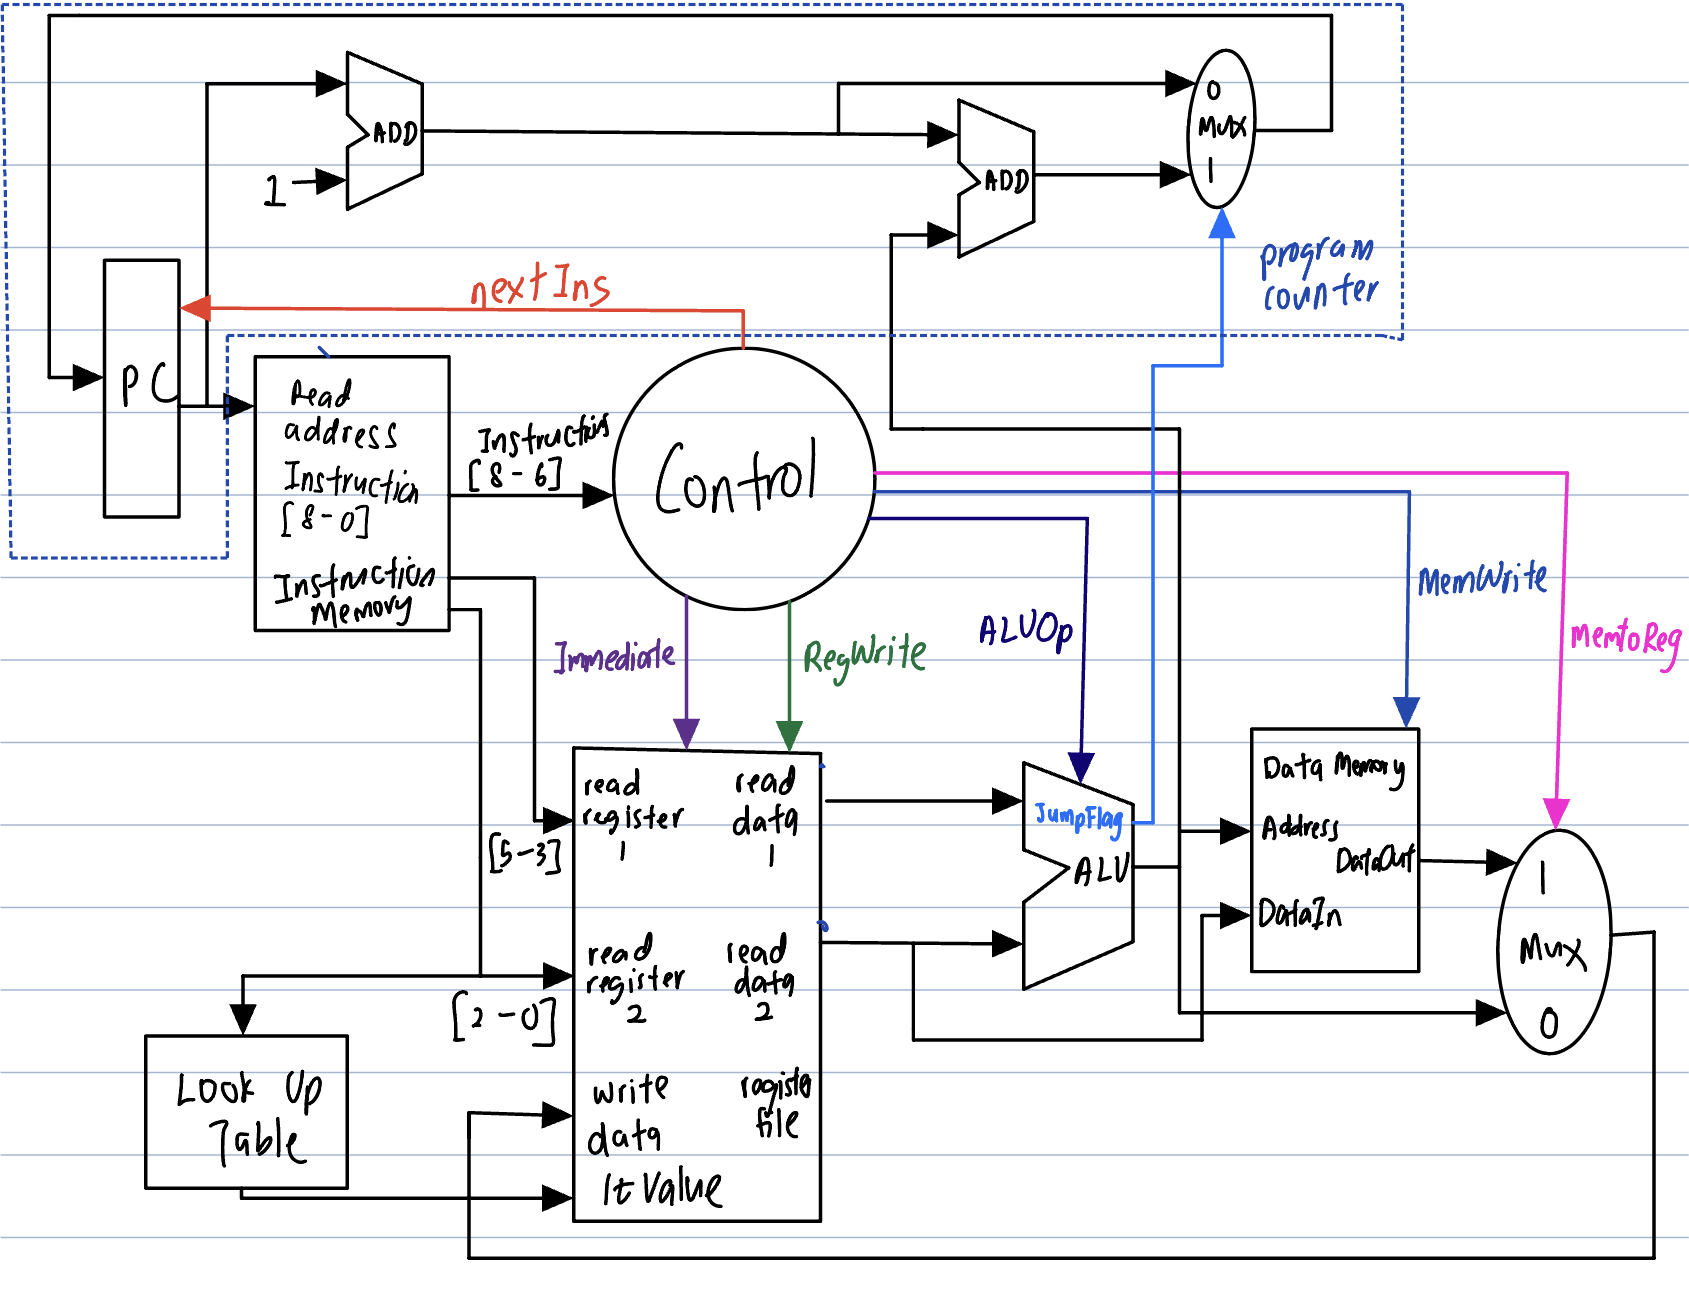 ADD
1
0
Mux
1
ADD
program
counter
nextIns
PC
Read
address
Instruction
[8-0]
Instruction
Memory
Instruction
[8-6]
Control
Immediate
RegWrite
ALUOp
MemWrite
MemtoReg
read
register
1
read
data
1
[5-3]
read
register
2
read
data
2
[2-0]
write
data
register
file
ltValue
Look Up
Table
JumpFlag
ALU
Data Memory
Address
DataOut
DataIn
1
Mux
0